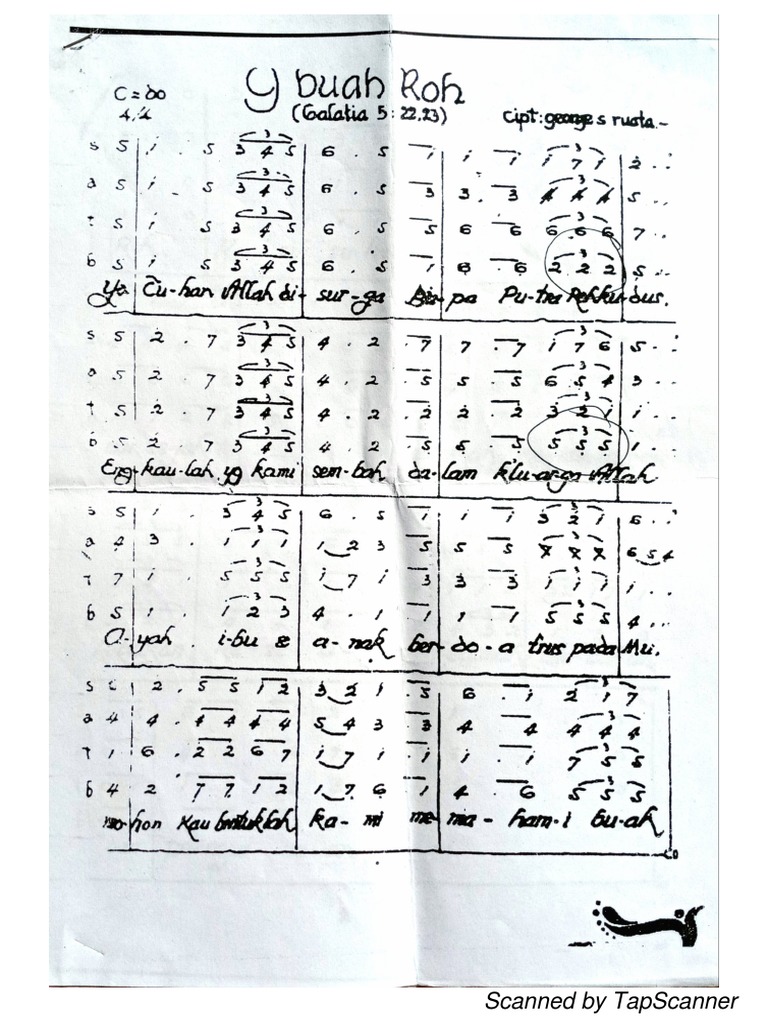 9 buah Roh
C = do
4/4
(Galatia 5: 22,23)
cipt: george s ruata.-
s 5 | i . 5 3 4 5 | 6 . 5 i | i . i i 7 i | 2 . .
a 5 | i . 5 3 4 5 | 6 . 5 3 | 3 . 3 4 4 4 | 5 . .
t 5 | i . 5 3 4 5 | 6 . 5 5 | 6 6 6 6 6 | 7 . .
b 5 | i . 5 3 4 5 | 6 . 5 1 | 6 . 6 2 2 2 | 5 . .
Ya Tu-han Allah di- sur-ga Ba-pa Pu-tra Rohku-dus.
s 5 | 2 . 7 3 4 5 | 4 . 2 7 | 7 . 7 i 7 6 | 5 . .
a 5 | 2 . 7 3 4 5 | 4 . 2 5 | 5 . 5 6 5 4 | 3 . .
t 5 | 2 . 7 3 4 5 | 4 . 2 2 | 2 . 2 3 2 i | i . .
b 5 | 2 . 7 3 4 5 | 4 . 2 5 | 5 . 5 5 5 5 | 1 . .
Eng-kau-lah yg kami sem-bah da-lam k'lu-arga Allah
s 5 | i . 3 4 5 | 6 . 5 i | i i 3 2 i | 6 . .
a 4 | 3 . 1 1 1 | 1 2 3 5 | 5 5 | 6 5 4
t 7 | i . 5 5 5 | i 7 i 3 | 3 3 i i i | i . .
b 5 | 1 . 1 2 3 | 4 . 1 1 | 1 1 5 5 5 | 4 . .
A-yah i-bu & a-nak ber-do-a trus pada Mu.
s i | 2 . 5 5 1 2 | 3 2 1 5 | 6 . i 2 i 7
a 4 | 4 . 4 4 4 4 | 5 4 3 3 | 4 4 4 4 4
t 1 | 6 . 2 2 6 7 | i 7 i i | i . i 7 5 5
b 4 | 2 7 7 1 2 | 1 7 6 1 | 4 . 6 5 5 5
mo-hon Kau bentuklah ka-mi me-ma-ham-i bu-ah
Scanned by TapScanner